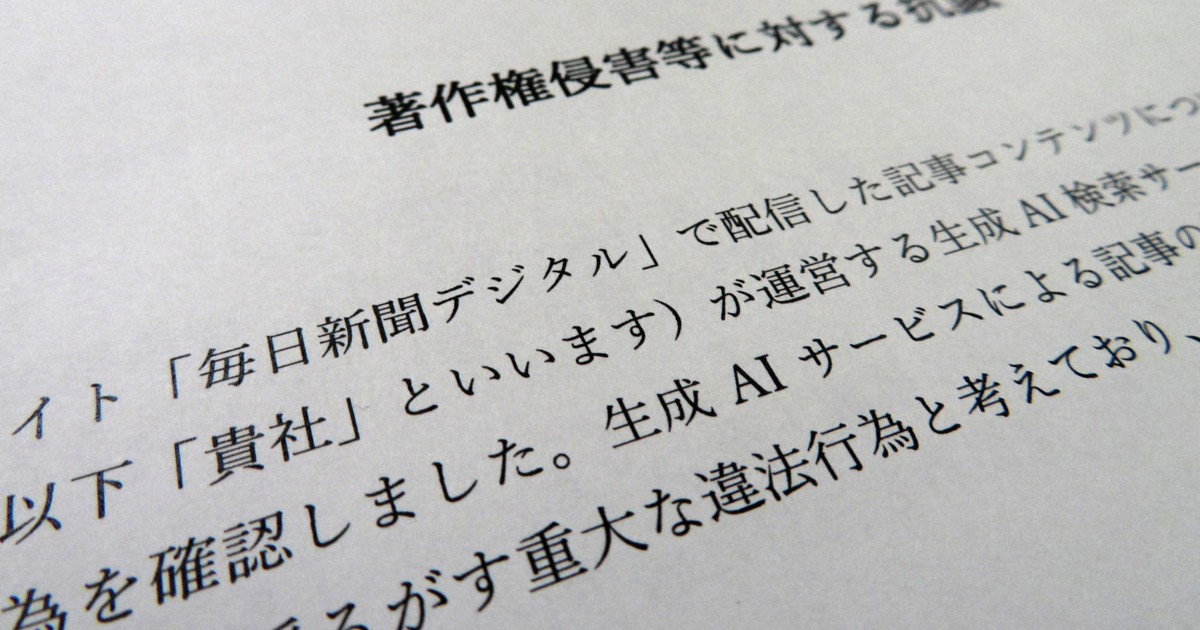 著作権侵害等に対する抗議
イト「毎日新聞デジタル」で配信した記事コンテンツにつ
以下「貴社」といいます）が運営する生成 AI 検索サー
為を確認しました。生成 AI サービスによる記事の
るがす重大な違法行為と考えており、